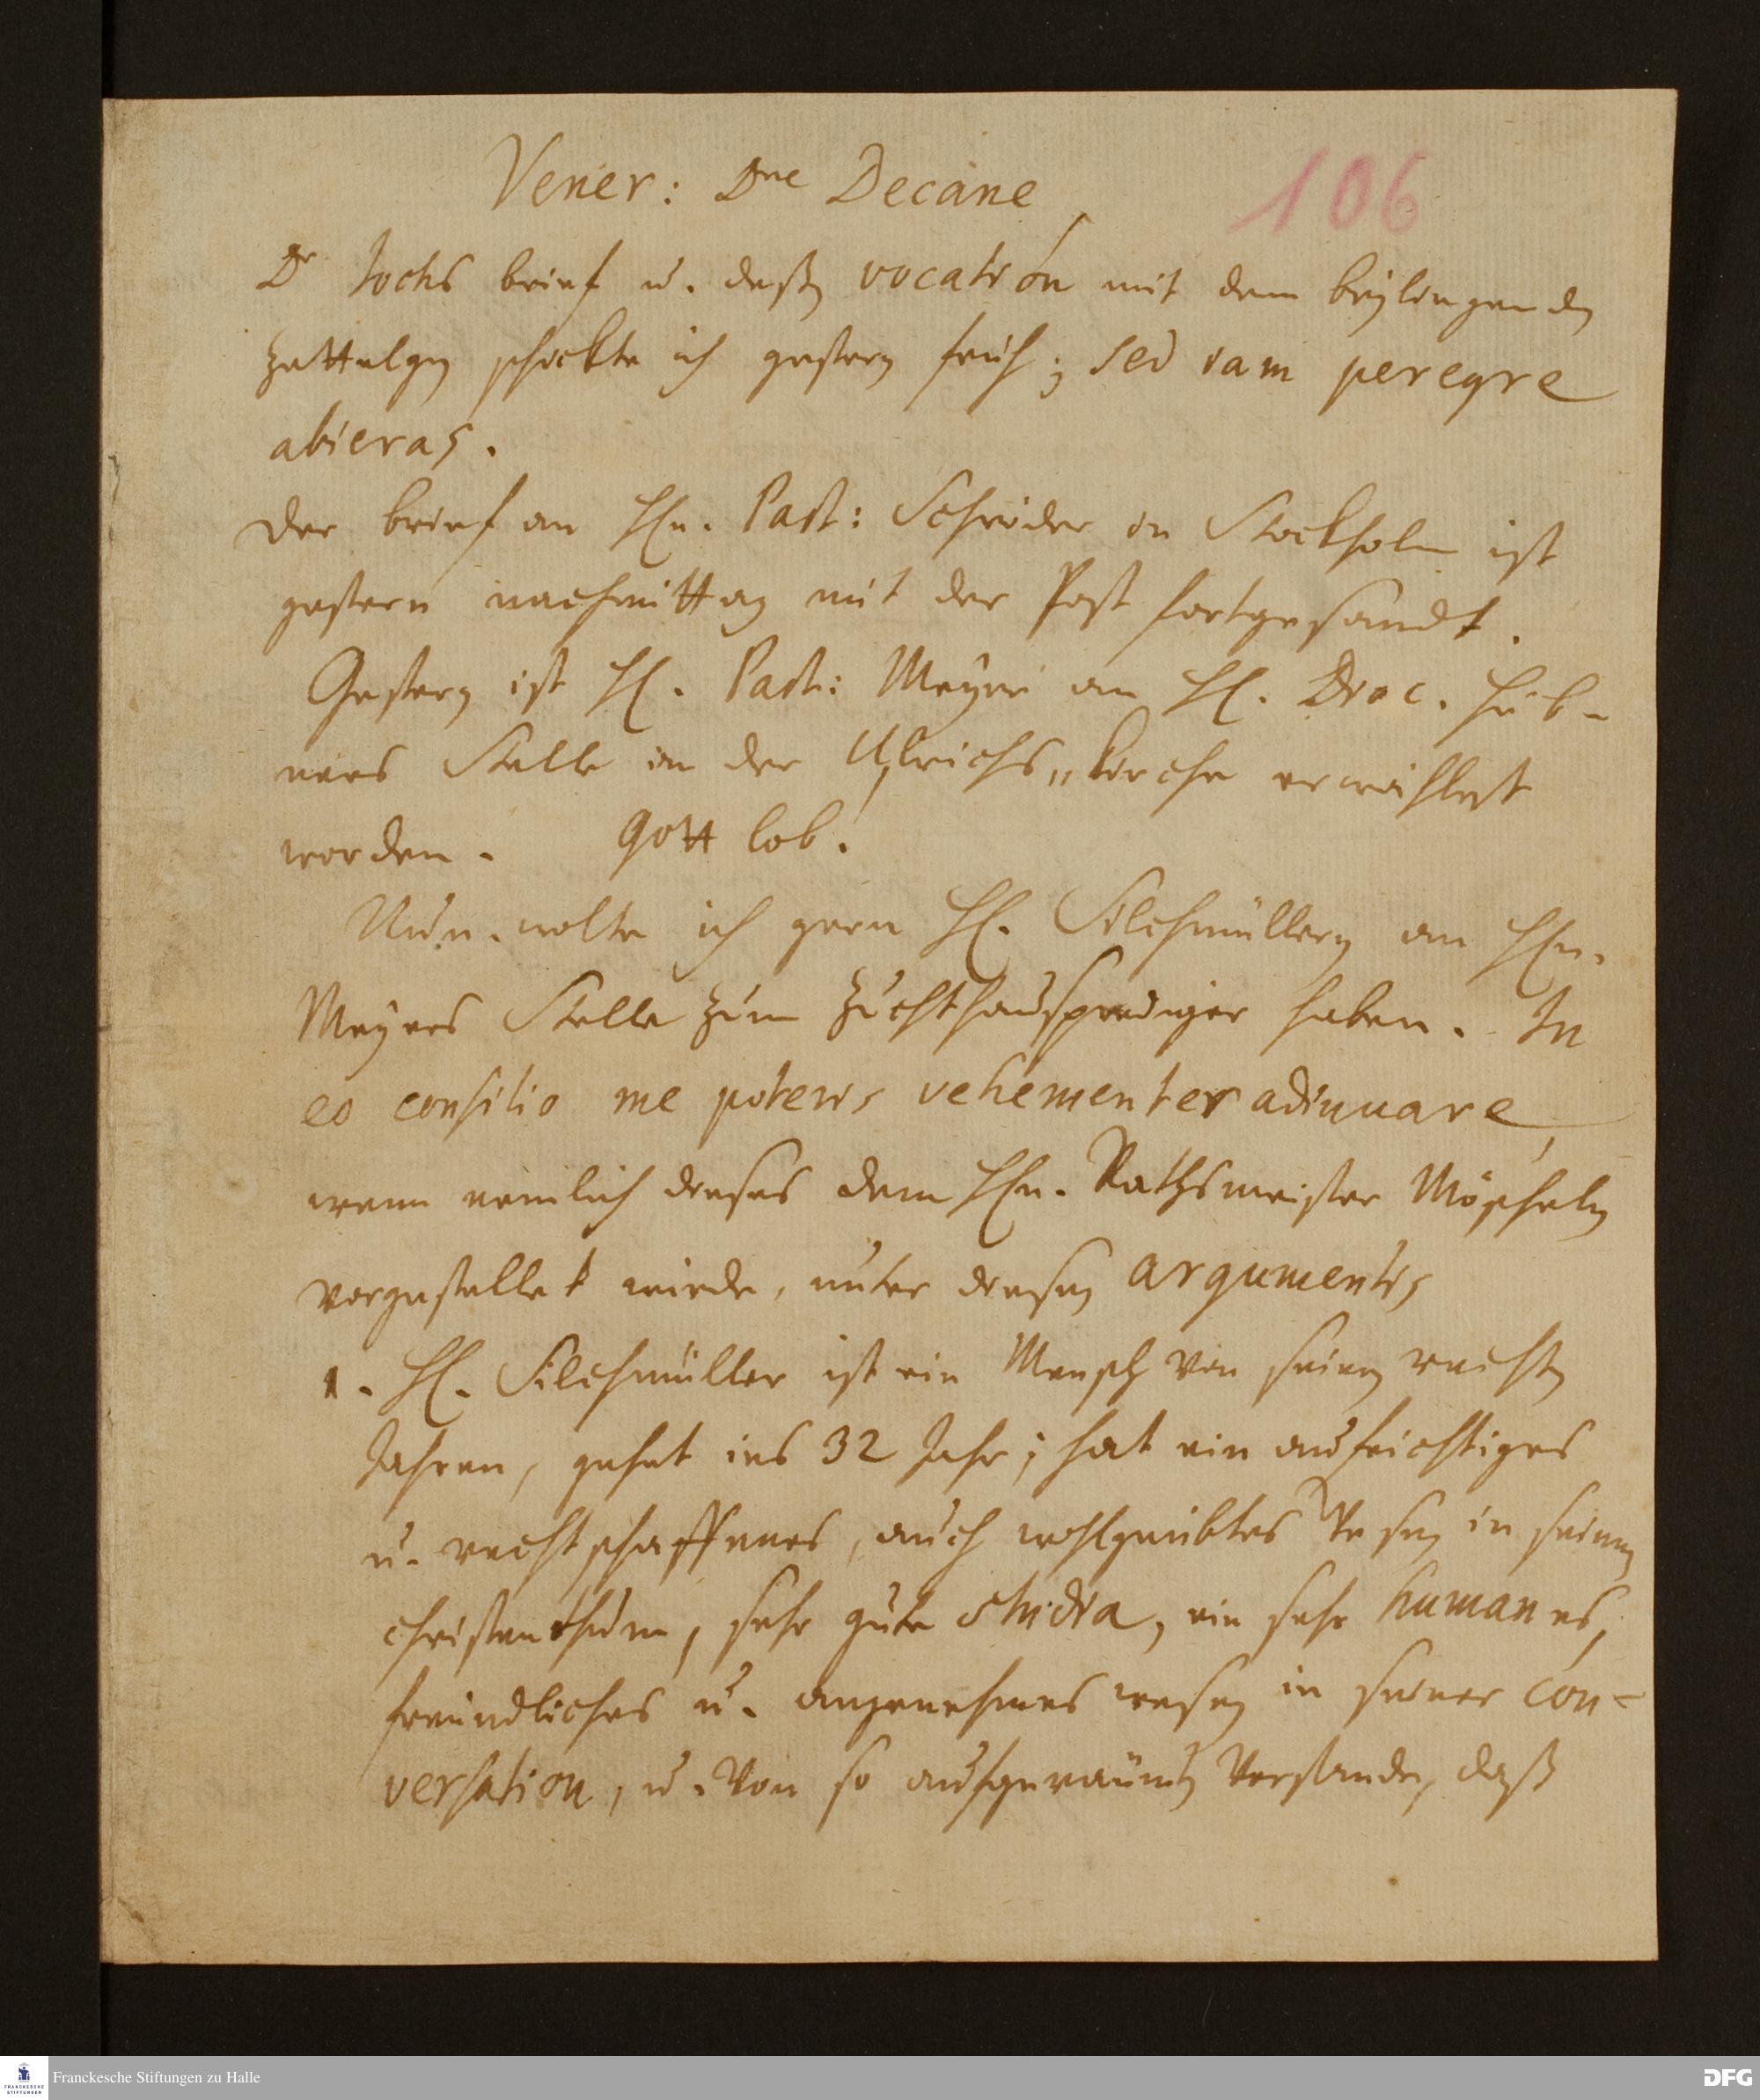 106
Vener: Dne Decane
Dr Jochs brief u. deßen vocation mit dem beyliegenden
Zettelgen schickte ich gestern früh; sed iam peregre
abieras.
Der brief an Hn. Past: Schröder in Stockholm ist
gestern nachmittag mit der Post fortgesandt.
Gestern ist H. Past: Meyer an H. Diac. Hüb-
ners Stelle in der Ulrichs„kirche erwählet
worden. Gott lob!
Nun wolte ich gern H. Silchmüllern an Hn.
Meyers Stelle zum Zuchthausprediger haben. In
eo consilio me poteris vehementer adiuuare,
wenn nemlich dieses dem Hn. Rathsmeister Möscheln
vorgestellet würde, unter diesen argumentis
1. H. Silchmüller ist ein Mensch von seinen rechten
Jahren, gehet ins 32 Jahr; hat ein aufrichtiges
u. rechtschaffenes, auch wohlgeübtes Wesen in seinem
christenthum, sehr gute studia, ein sehr humanes,
freundliches u. angenehmes wesen in seiner con-
versation, u. von so aufgeräumten Verstande, daß
Franckesche Stiftungen zu Halle
DFG